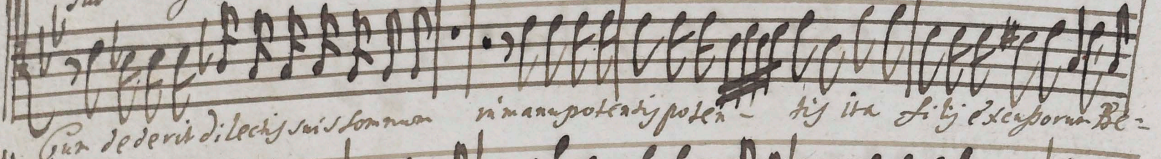 Cum dederit dilectis suis somnum in manu potentis poten - tis ita filij excussorum Be -